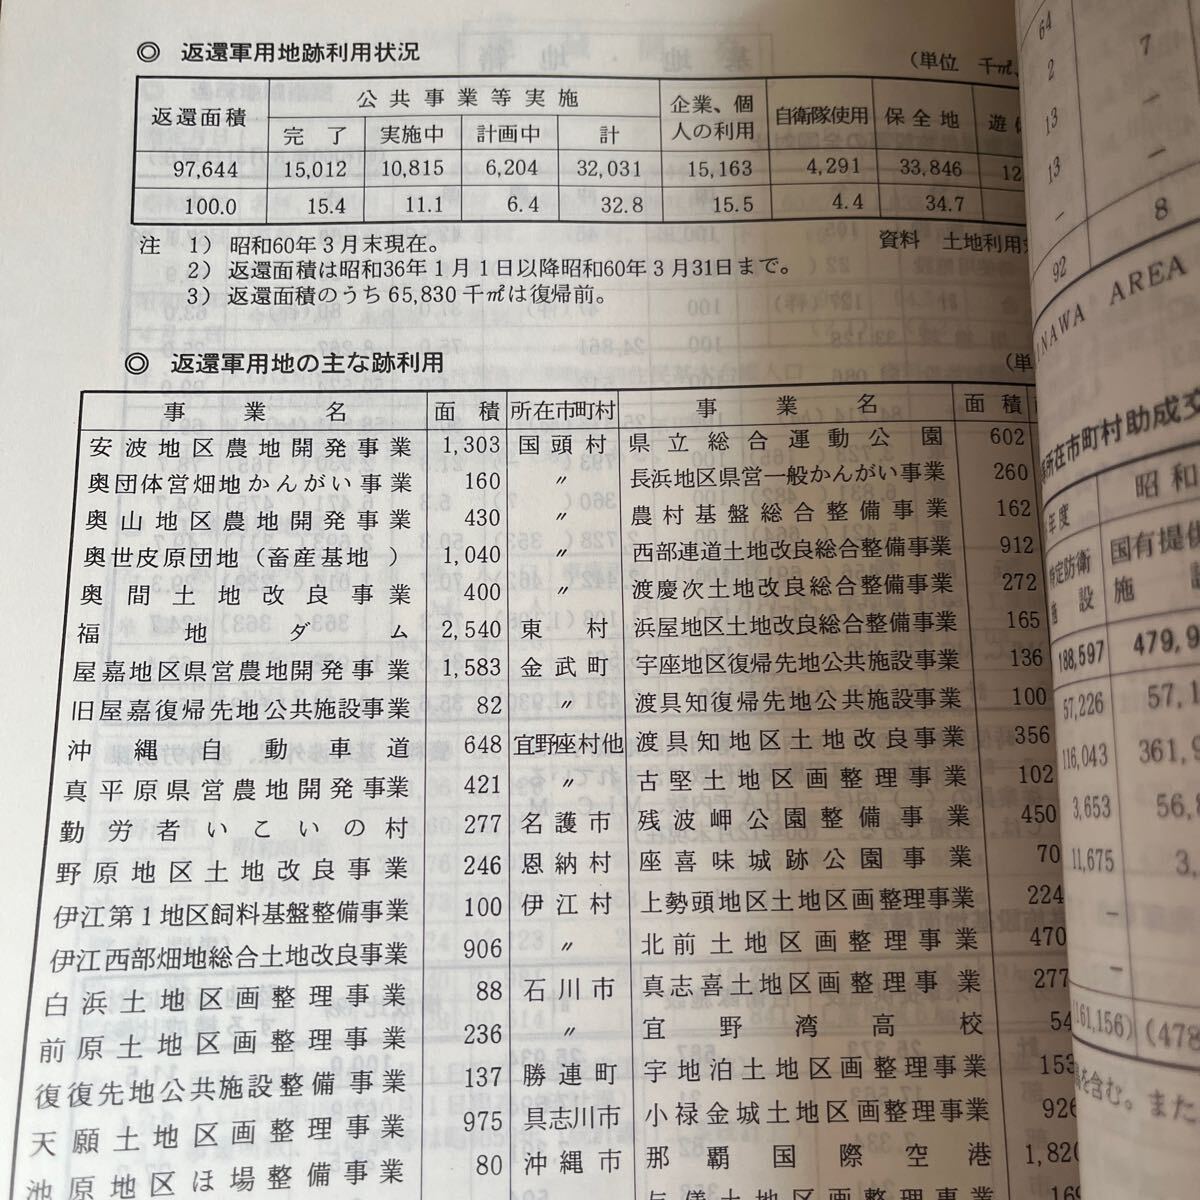 ◎ 返還軍用地跡利用状況
(単位 千㎡、
返還面積 公共事業等実施 企業、個人の利用 自衛隊使用 保全地
完了 実施中 計画中 計
97,644 15,012 10,815 6,204 32,031 15,163 4,291 33,846
100.0 15.4 11.1 6.4 32.8 15.5 4.4 34.7
注 1) 昭和60年3月末現在。 資料 土地利用
2) 返還面積は昭和36年1月1日以降昭和60年3月31日まで。
3) 返還面積のうち65,830千㎡は復帰前。
◎ 返還軍用地の主な跡利用
事業名 面積 所在市町村 事業名 面積
安波地区農地開発事業 1,303 国頭村 県立総合運動公園 602
奥団体営畑地かんがい事業 160 〃 長浜地区県営一般かんがい事業 260
奥山地区農地開発事業 430 〃 農村基盤総合整備事業 162
奥世皮原団地(畜産基地) 1,040 〃 西部連道土地改良総合整備事業 912
奥間土地改良事業 400 〃 渡慶次土地改良総合整備事業 272
福地ダム 2,540 東村 浜屋地区土地改良総合整備事業 165
屋嘉地区県営農地開発事業 1,583 金武町 宇座地区復帰先地公共施設事業 136
旧屋嘉復帰先地公共施設事業 82 〃 渡具知復帰先地公共施設事業 100
沖縄自動車道 648 宜野座村他 渡具知地区土地改良事業 356
真平原県営農地開発事業 421 〃 古堅土地区画整理事業 102
勤労者いこいの村 277 名護市 残波岬公園整備事業 450
野原地区土地改良事業 246 恩納村 座喜味城跡公園事業 70
伊江第1地区飼料基盤整備事業 100 伊江村 上勢頭地区土地区画整理事業 224
伊江西部畑地総合土地改良事業 906 〃 北前土地区画整理事業 470
白浜土地区画整理事業 88 石川市 真志喜土地区画整理事業 277
前原土地区画整理事業 236 〃 宜野湾高校 54
復復先地公共施設整備事業 137 勝連町 宇地泊土地区画整理事業 153
天願土地区画整理事業 975 具志川市 小禄金城土地区画整理事業 926
池原地区ほ場整備事業 80 沖縄市 那覇国際空港 1,820
与儀土地区画整理事業
64
2 7
13 －
13 －
－
92 8
INAWA AREA
所在市町村助成交
年度 昭和
特定防衛施設 国有提供施設
188,597 479,9
57,226 57,1
116,043 361,9
3,653 56,8
11,675 3,
－
－
(161,156) (478
を含む。また